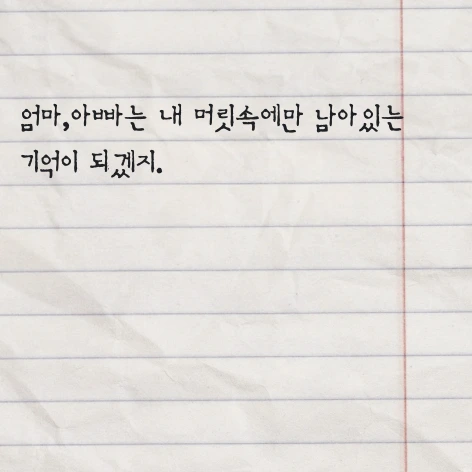 엄마,아빠는 내 머릿속에만 남아있는
기억이 되겠지.